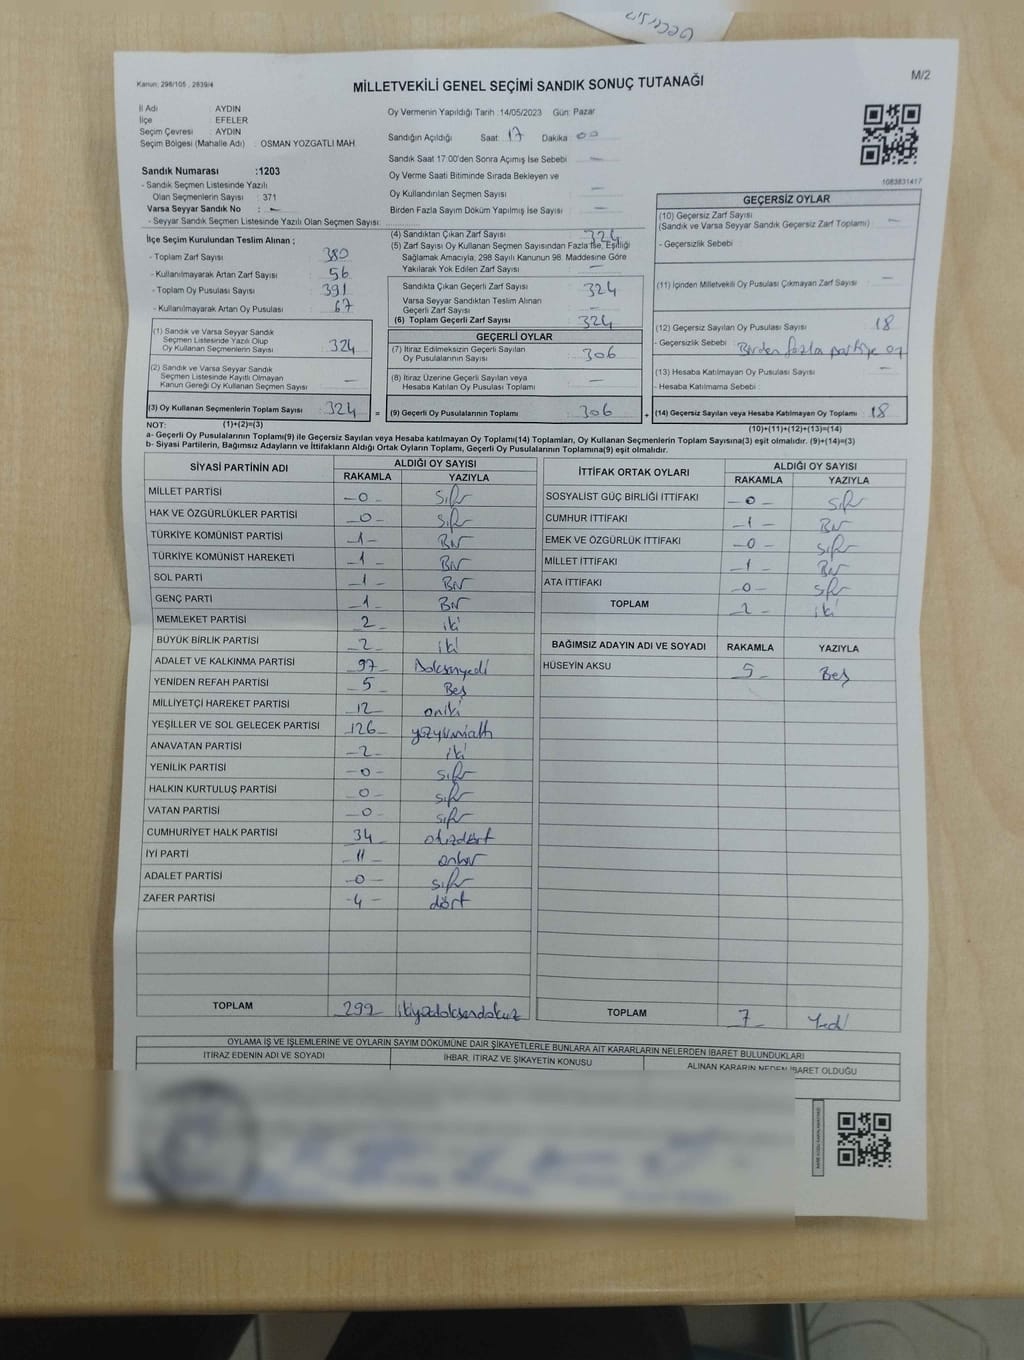 Geçersiz
Kanun: 298/105 , 2839/4
MİLLETVEKİLİ GENEL SEÇİMİ SANDIK SONUÇ TUTANAĞI
M/2
İl Adı : AYDIN
İlçe : EFELER
Seçim Çevresi : AYDIN
Seçim Bölgesi (Mahalle Adı) : OSMAN YOZGATLI MAH.
Sandık Numarası :1203
- Sandık Seçmen Listesinde Yazılı
Olan Seçmenlerin Sayısı : 371
Varsa Seyyar Sandık No : -
- Seyyar Sandık Seçmen Listesinde Yazılı Olan Seçmen Sayısı:
Oy Vermenin Yapıldığı Tarih :14/05/2023 Gün: Pazar
Sandığın Açıldığı Saat: 17 Dakika : 00
Sandık Saat 17:00'den Sonra Açımış İse Sebebi -
Oy Verme Saati Bitiminde Sırada Bekleyen ve
Oy Kullandırılan Seçmen Sayısı -
Birden Fazla Sayım Döküm Yapılmış İse Sayısı -
1083831417
İlçe Seçim Kurulundan Teslim Alınan ;
- Toplam Zarf Sayısı : 380
- Kullanılmayarak Artan Zarf Sayısı : 56
- Toplam Oy Pusulası Sayısı : 391
- Kullanılmayarak Artan Oy Pusulası : 67
(1) Sandık ve Varsa Seyyar Sandık
Seçmen Listesinde Yazılı Olup
Oy Kullanan Seçmenlerin Sayısı : 324
(2) Sandık ve Varsa Seyyar Sandık
Seçmen Listesinde Kayıtlı Olmayan
Kanun Gereği Oy Kullanan Seçmen Sayısı : -
(3) Oy Kullanan Seçmenlerin Toplam Sayısı : 324 =
(4) Sandıktan Çıkan Zarf Sayısı : 324
(5) Zarf Sayısı Oy Kullanan Seçmen Sayısından Fazla İse, Eşitliği
Sağlamak Amacıyla, 298 Sayılı Kanunun 98. Maddesine Göre
Yakılarak Yok Edilen Zarf Sayısı : -
Sandıkta Çıkan Geçerli Zarf Sayısı : 324
Varsa Seyyar Sandıktan Teslim Alınan
Geçerli Zarf Sayısı : -
(6) Toplam Geçerli Zarf Sayısı : 324
GEÇERLİ OYLAR
(7) İtiraz Edilmeksizin Geçerli Sayılan
Oy Pusulalarının Sayısı : 306
(8) İtiraz Üzerine Geçerli Sayılan veya
Hesaba Katılan Oy Pusulası Toplamı : -
(9) Geçerli Oy Pusulalarının Toplamı : 306 +
GEÇERSİZ OYLAR
(10) Geçersiz Zarf Sayısı
(Sandık ve Varsa Seyyar Sandık Geçersiz Zarf Toplamı) : -
- Geçersizlik Sebebi
(11) İçinden Milletvekili Oy Pusulası Çıkmayan Zarf Sayısı : -
(12) Geçersiz Sayılan Oy Pusulası Sayısı : 18
- Geçersizlik Sebebi : Birden fazla partiye oy
(13) Hesaba Katılmayan Oy Pusulası Sayısı : -
- Hesaba Katılmama Sebebi :
(14) Geçersiz Sayılan veya Hesaba Katılmayan Oy Toplamı : 18
NOT: (1)+(2)=(3)
(10)+(11)+(12)+(13)=(14)
a- Geçerli Oy Pusulalarının Toplamı(9) ile Geçersiz Sayılan veya Hesaba katılmayan Oy Toplamı(14) Toplamları, Oy Kullanan Seçmenlerin Toplam Sayısına(3) eşit olmalıdır. (9)+(14)=(3)
b- Siyasi Partilerin, Bağımsız Adayların ve İttifakların Aldığı Ortak Oyların Toplamı, Geçerli Oy Pusulalarının Toplamına(9) eşit olmalıdır.
SİYASİ PARTİNİN ADI ALDIĞI OY SAYISI
RAKAMLA YAZIYLA
MİLLET PARTİSİ -0- sıfır
HAK VE ÖZGÜRLÜKLER PARTİSİ -0- sıfır
TÜRKİYE KOMÜNİST PARTİSİ -1- Bir
TÜRKİYE KOMÜNİST HAREKETİ -1 Bir
SOL PARTİ -1 Bir
GENÇ PARTİ -1 Bir
MEMLEKET PARTİSİ 2 iki
BÜYÜK BİRLİK PARTİSİ -2 iki
ADALET VE KALKINMA PARTİSİ 97 Doksanyedi
YENİDEN REFAH PARTİSİ 5 Beş
MİLLİYETÇİ HAREKET PARTİSİ -12 oniki
YEŞİLLER VE SOL GELECEK PARTİSİ 126 yüzyirmialtı
ANAVATAN PARTİSİ -2- iki
YENİLİK PARTİSİ -0- sıfır
HALKIN KURTULUŞ PARTİSİ -0- sıfır
VATAN PARTİSİ -0 sıfır
CUMHURİYET HALK PARTİSİ 34 otuzdört
İYİ PARTİ -11- onbir
ADALET PARTİSİ -0- sıfır
ZAFER PARTİSİ -4- dört
TOPLAM 299 ikiyüzdoksandokuz
İTTİFAK ORTAK OYLARI ALDIĞI OY SAYISI
RAKAMLA YAZIYLA
SOSYALİST GÜÇ BİRLİĞİ İTTİFAKI -0- sıfır
CUMHUR İTTİFAKI -1- Bir
EMEK VE ÖZGÜRLÜK İTTİFAKI -0- sıfır
MİLLET İTTİFAKI -1- Bir
ATA İTTİFAKI -0- sıfır
TOPLAM 2- iki
BAĞIMSIZ ADAYIN ADI VE SOYADI RAKAMLA YAZIYLA
HÜSEYİN AKSU 5- Beş
TOPLAM 7- Yedi
OYLAMA İŞ VE İŞLEMLERİNE VE OYLARIN SAYIM DÖKÜMÜNE DAİR ŞİKAYETLERLE BUNLARA AİT KARARLARIN NELERDEN İBARET BULUNDUKLARI
İTİRAZ EDENİN ADI VE SOYADI İHBAR, İTİRAZ VE ŞİKAYETİN KONUSU ALINAN KARARIN NEDEN İBARET OLDUĞU